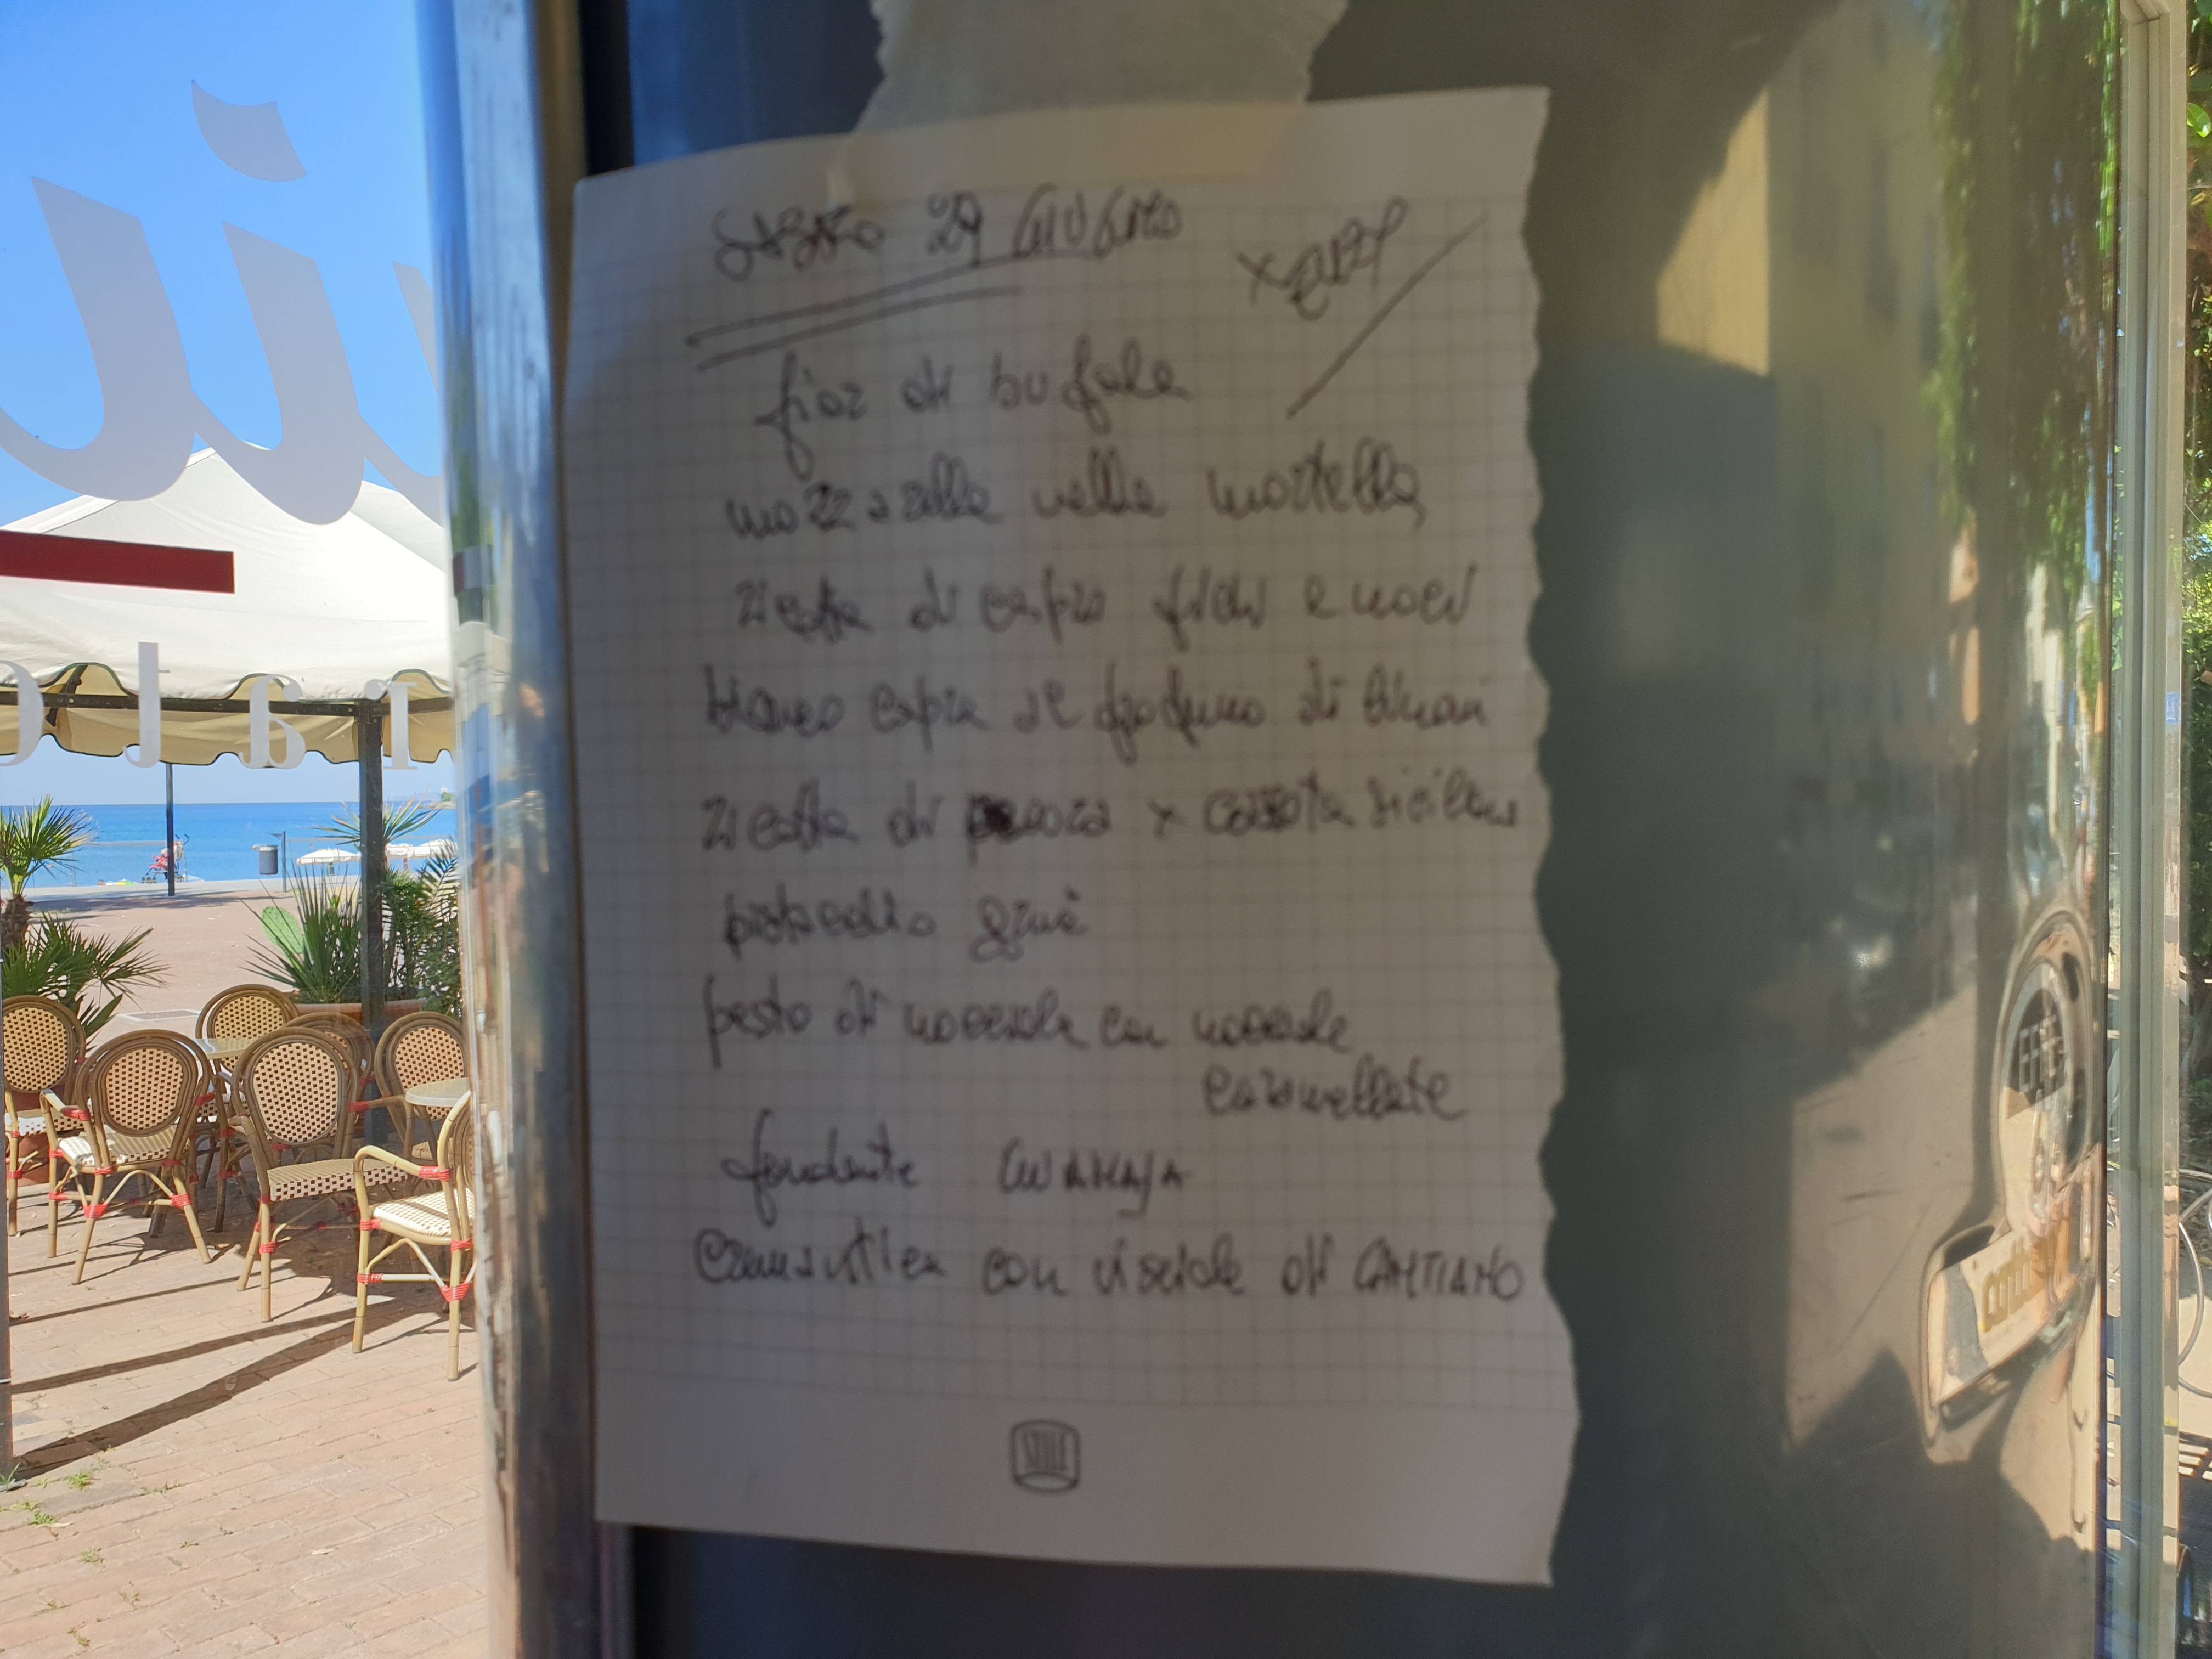 SABATO 29 GIUGNO
fior di bufala
mozzarella nella mortella
ricotta di capra fichi e noci
bianco capra al profumo di limoni
ricotta di pecora x cassata siciliana
pistacchio
pesto di nocciola con nocciole
caramellate
fondente GUANAJA
con visciole di CANTIANO
STILE